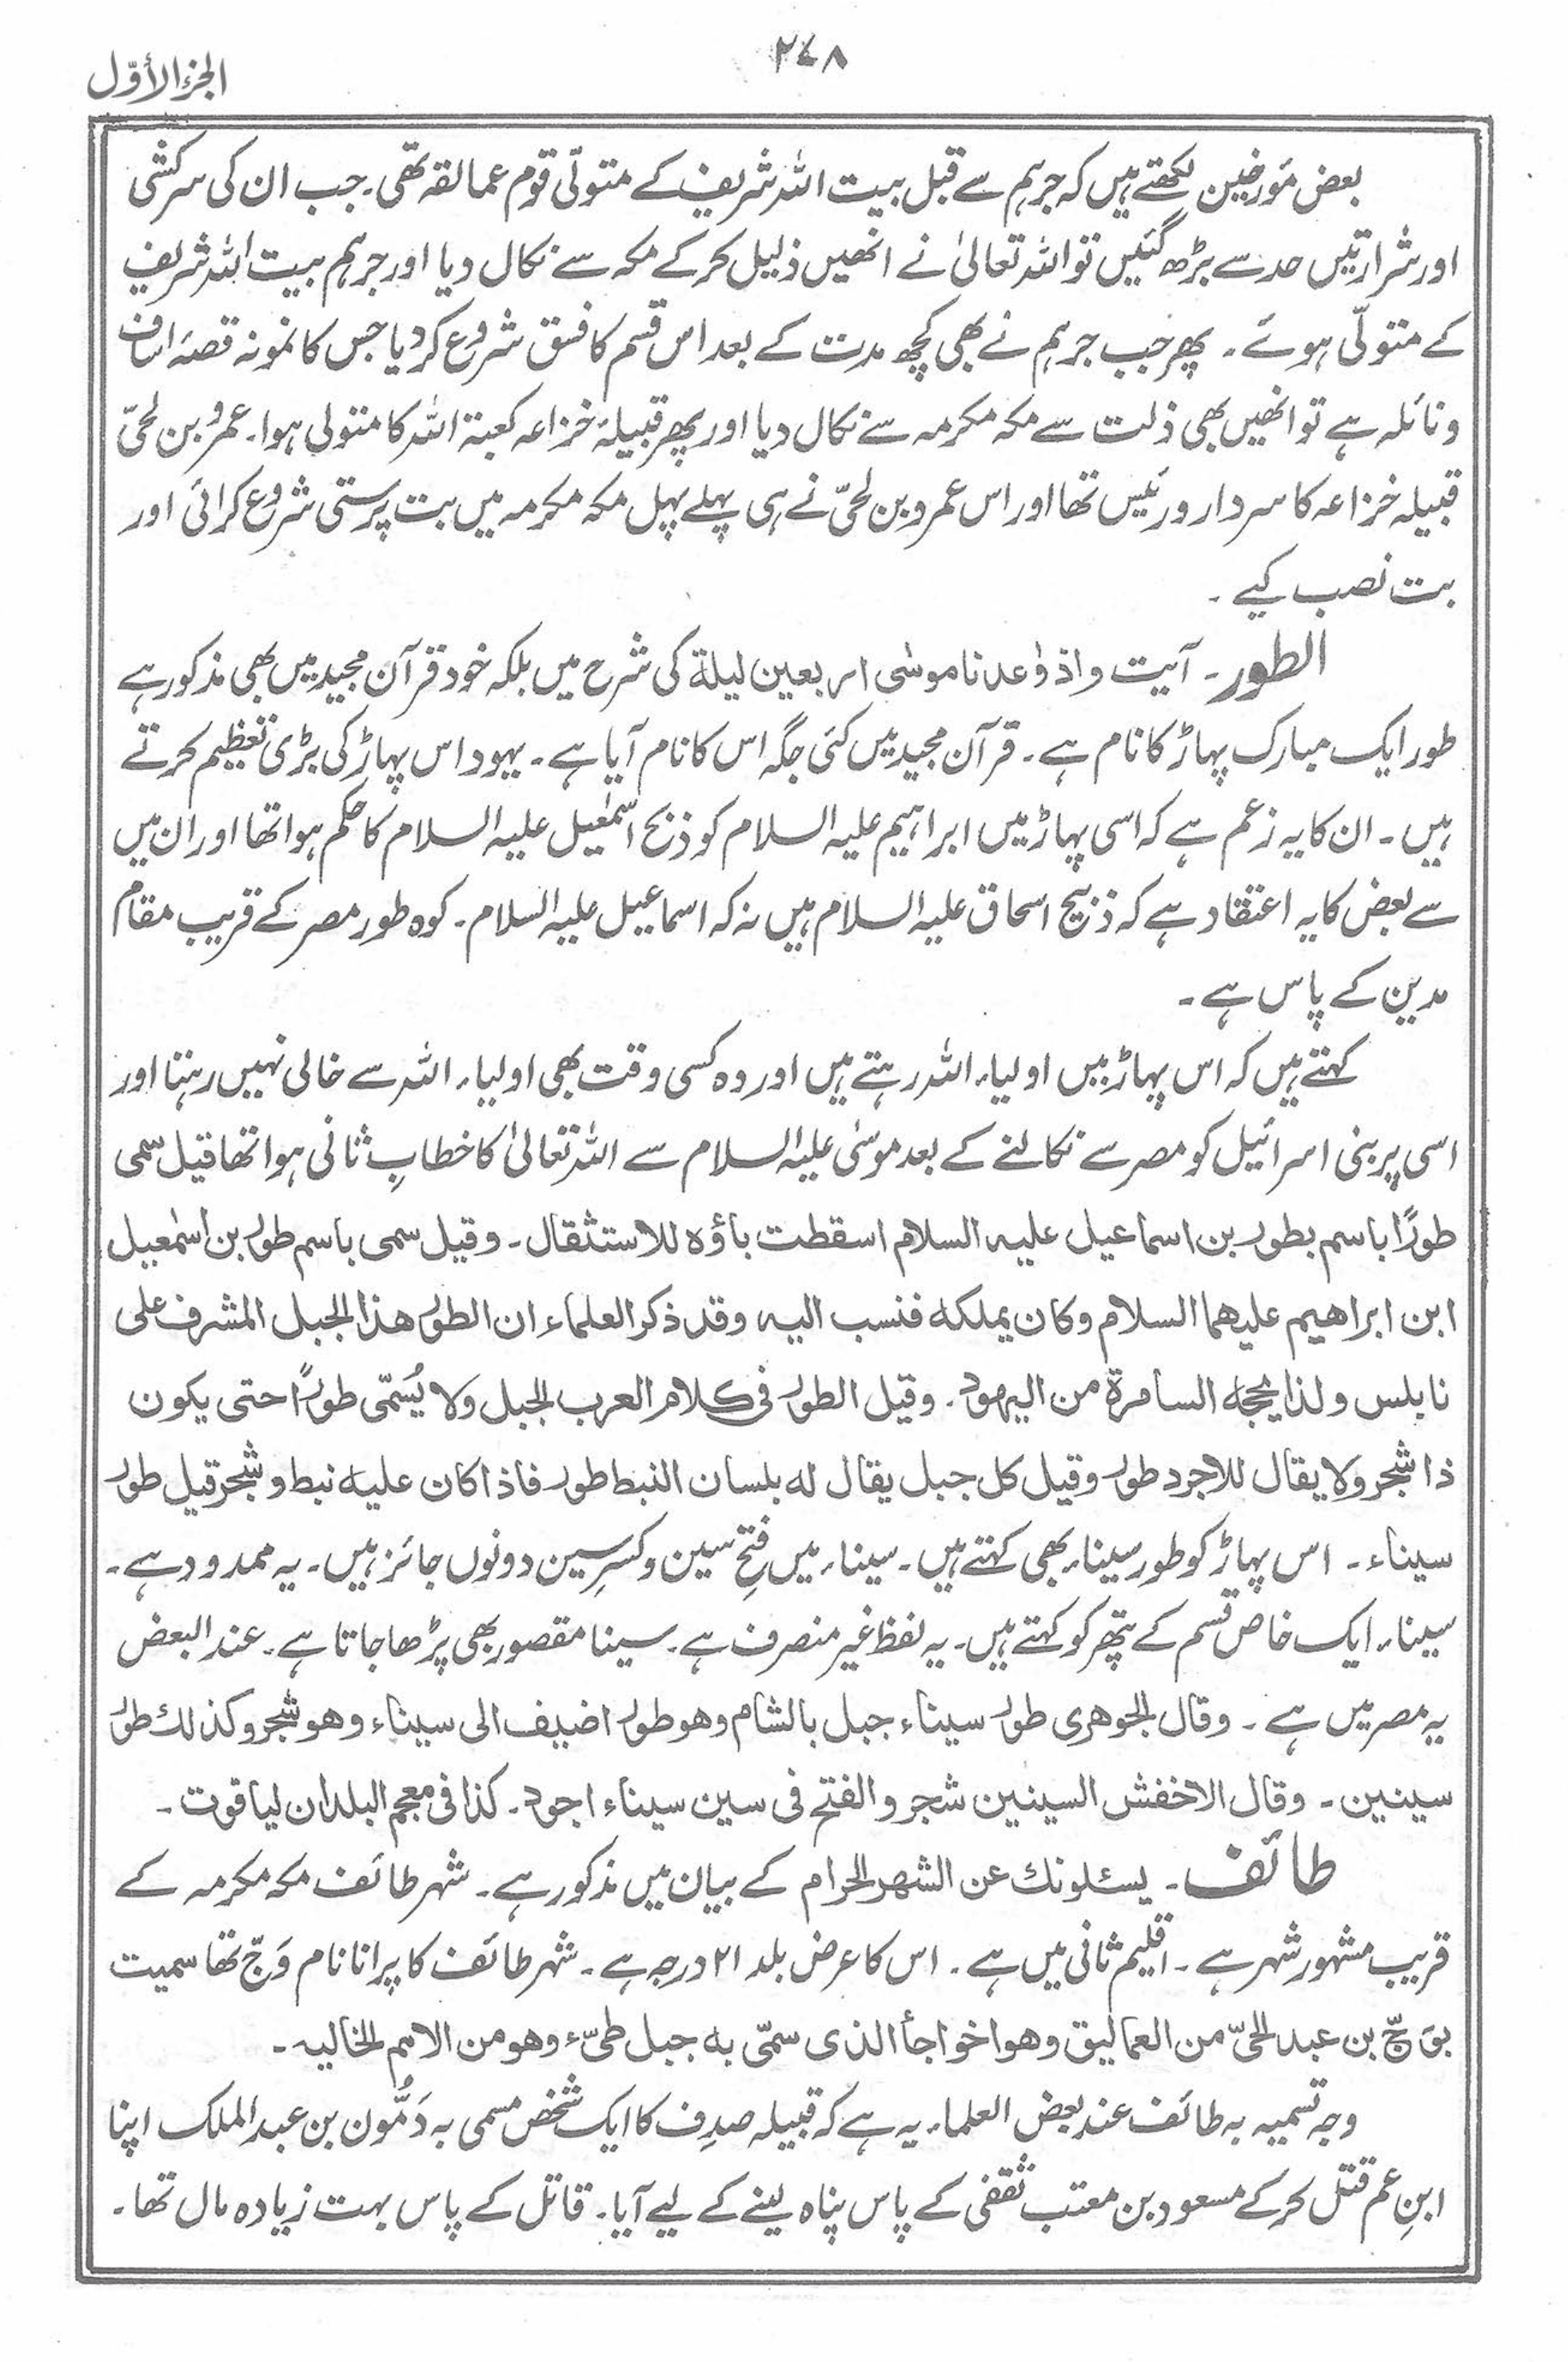 ۲۴۸
الجزء الأوّل
بعض مَورخین لکھتے ہیں کہ جرہم سے قبل بیت اللہ شریف کے متولّی قوم عمالقہ تھی۔ جب ان کی سرکشی
اور شرارتیں حد سے بڑھ گئیں تو اللہ تعالیٰ نے انھیں ذلیل کر کے مکہ سے نکال دیا اور جرہم بیت اللہ شریف
کے متولّی ہوئے۔ پھر جب جرہم نے بھی کچھ مدت کے بعد اس قسم کا فسق شروع کر دیا جس کا نمونہ قصۂ اساف
و نائلہ ہے تو انھیں بھی ذلت سے مکہ مکرمہ سے نکال دیا اور پھر قبیلۂ خزاعہ کعبۃ اللہ کا متولی ہوا۔ عمرو بن لحیّ
قبیلہ خزاعہ کا سردار و رئیس تھا اور اس عمرو بن لحیّ نے ہی پہلے پہل مکہ مکرمہ میں بت پرستی شروع کرائی اور
بت نصب کیے۔
الطور۔ آیت واذ وٰعدنا موسٰی اربعین لیلة کی شرح میں بلکہ خود قرآن مجید میں بھی مذکور ہے
طور ایک مبارک پہاڑ کا نام ہے۔ قرآن مجید میں کئی جگہ اس کا نام آیا ہے۔ یہود اس پہاڑ کی بڑی تعظیم کرتے
ہیں۔ ان کا یہ زعم ہے کہ اسی پہاڑ میں ابراہیم علیہ السلام کو ذبح اسمٰعیل علیہ السلام کا حکم ہوا تھا اور ان میں
سے بعض کا یہ اعتقاد ہے کہ ذبیح اسحاق علیہ السلام ہیں نہ کہ اسماعیل علیہ السلام۔ کوہ طور مصر کے قریب مقام
مدین کے پاس ہے۔
کہتے ہیں کہ اس پہاڑ میں اولیاء اللہ رہتے ہیں اور وہ کسی وقت بھی اولیاء اللہ سے خالی نہیں رہتا اور
اسی پر بنی اسرائیل کو مصر سے نکالنے کے بعد موسٰی علیہ السلام سے اللہ تعالیٰ کا خطابِ ثانی ہوا تھا قیل سمی
طورًا باسم بطور بن اسماعیل علیه السلام اسقطت باؤه للاستثقال۔ وقیل سمی باسم طور بن اسمٰعیل
ابن ابراهیم علیهما السلام وکان یملکه فنسب الیه وقد ذکر العلماء ان الطور هذا الجبل المشرف علی
نابلس ولذا یحجه السامرة من الیهود۔ وقیل الطور فی کلام العرب الجبل ولا یُسَمّی طورًا حتی یکون
ذا شجر ولا یقال للاجرد طور وقیل کل جبل یقال له بلسان النبط طور فاذا کان علیه نبط و شجر قیل طور
سیناء۔ اس پہاڑ کو طور سیناء بھی کہتے ہیں۔ سیناء میں فتحِ سین و کسرِ سین دونوں جائز ہیں۔ یہ ممدود ہے۔
سیناء ایک خاص قسم کے پتھر کو کہتے ہیں۔ یہ لفظ غیر منصرف ہے۔ سینا مقصور بھی پڑھا جاتا ہے۔ عند البعض
یہ مصر میں ہے۔ وقال الجوهری طور سیناء جبل بالشام وهو طور اضیف الی سیناء وهو شجر وکذلك طور
سینین۔ وقال الاخفش السینین شجر والفتح فی سین سیناء اجود۔ کذا فی معجم البلدان لیاقوت۔
طائف۔ یسئلونك عن الشهر الحرام کے بیان میں مذکور ہے۔ شہر طائف مکہ مکرمہ کے
قریب مشہور شہر ہے۔ اقلیم ثانی میں ہے۔ اس کا عرض بلد ۲۱ درجہ ہے۔ شہر طائف کا پرانا نام وَجّ تھا سمیت
بوَجّ بن عبد الحیّ من العمالیق وهو اخو اجأ الذی سمّی به جبل طیّء وهو من الامم الخالیہ۔
وجہ تسمیہ بہ طائف عند بعض العلماء یہ ہے کہ قبیلہ صدِف کا ایک شخص مسمی بہ دَمُّون بن عبد الملک اپنا
ابنِ عم قتل کر کے مسعود بن معتب ثقفی کے پاس پناہ لینے کے لیے آیا۔ قاتل کے پاس بہت زیادہ مال تھا۔